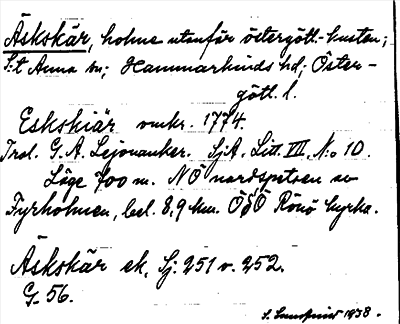 Äskskär, holme utanför östergötl.-kusten;
S:t Anna sn; Hammarkinds hd; Öster-
götl. l.
Eskskiär omkr. 1774.
Trol. G. A. Lejonanker. SjA. Litt. VII, No 10.
Läge 700 m. NO nordspetsen av
Fyrholmen, bel. 8,9 km. OSO Rönö kyrka.
Äskskär ek, Sj. 251 v. 252.
G. 56.
S. Lundquist 1938.